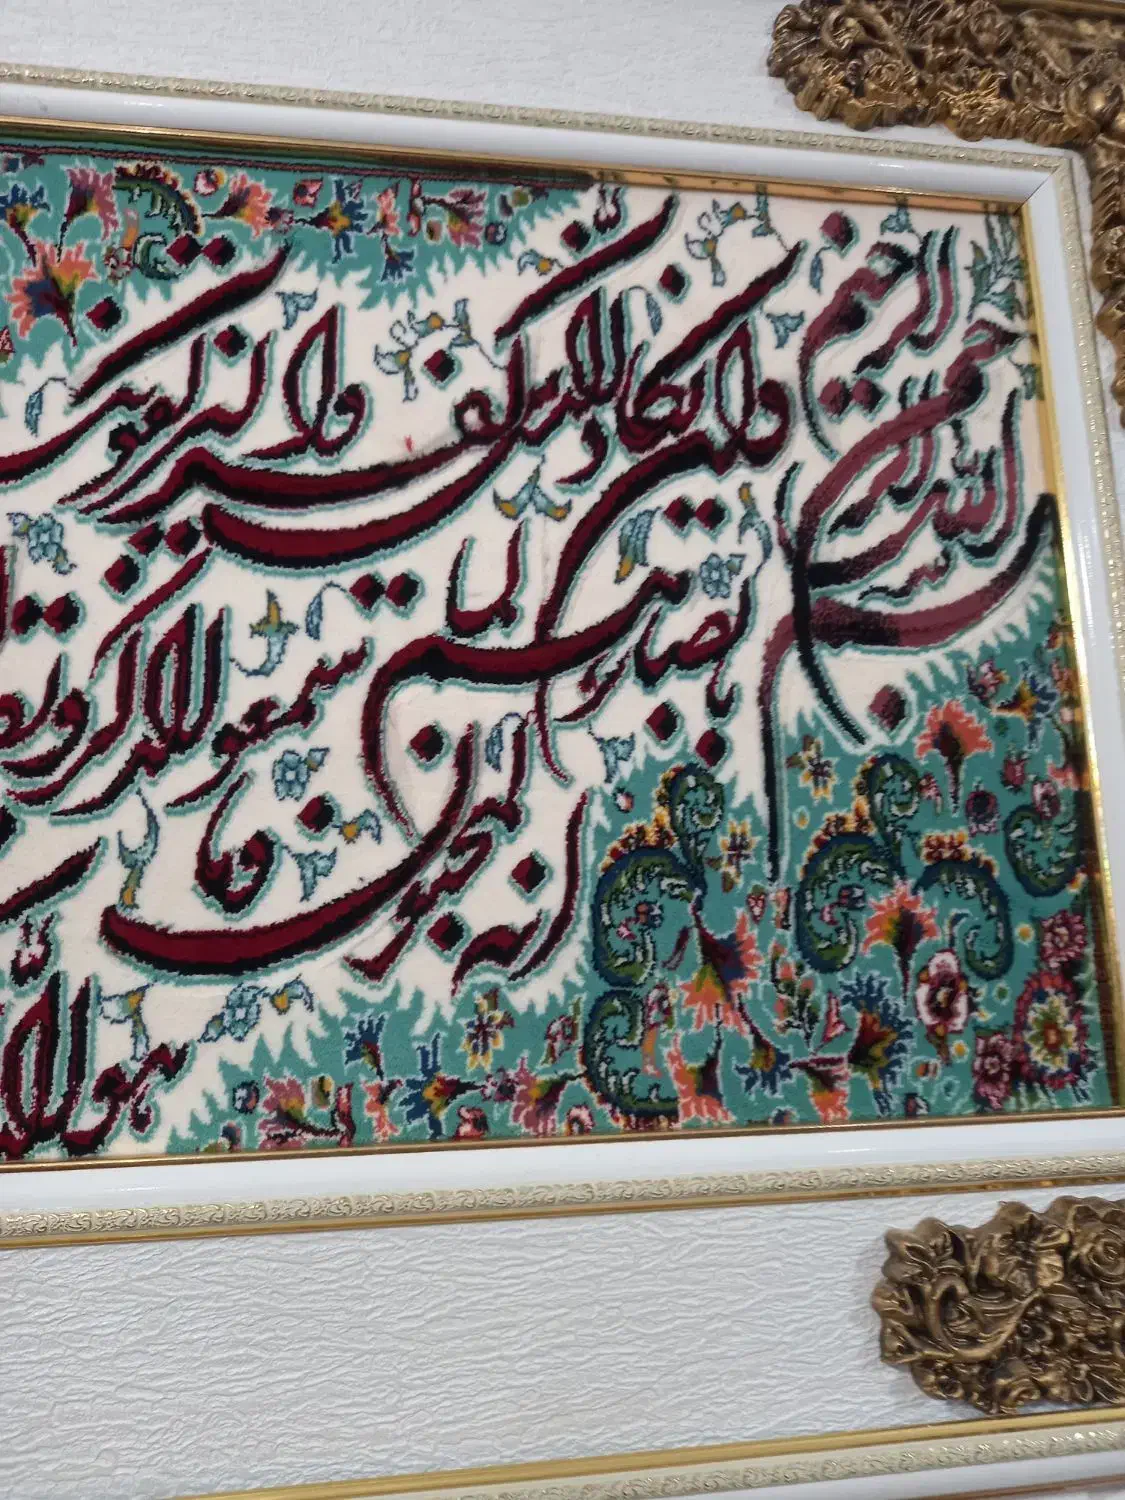 بسم الله الرحمن الرحیم
وان یکاد الذین کفروا لیزلقونک
بابصارهم لما سمعوا الذکر و یقو
انه لمجنون وما
هو الا